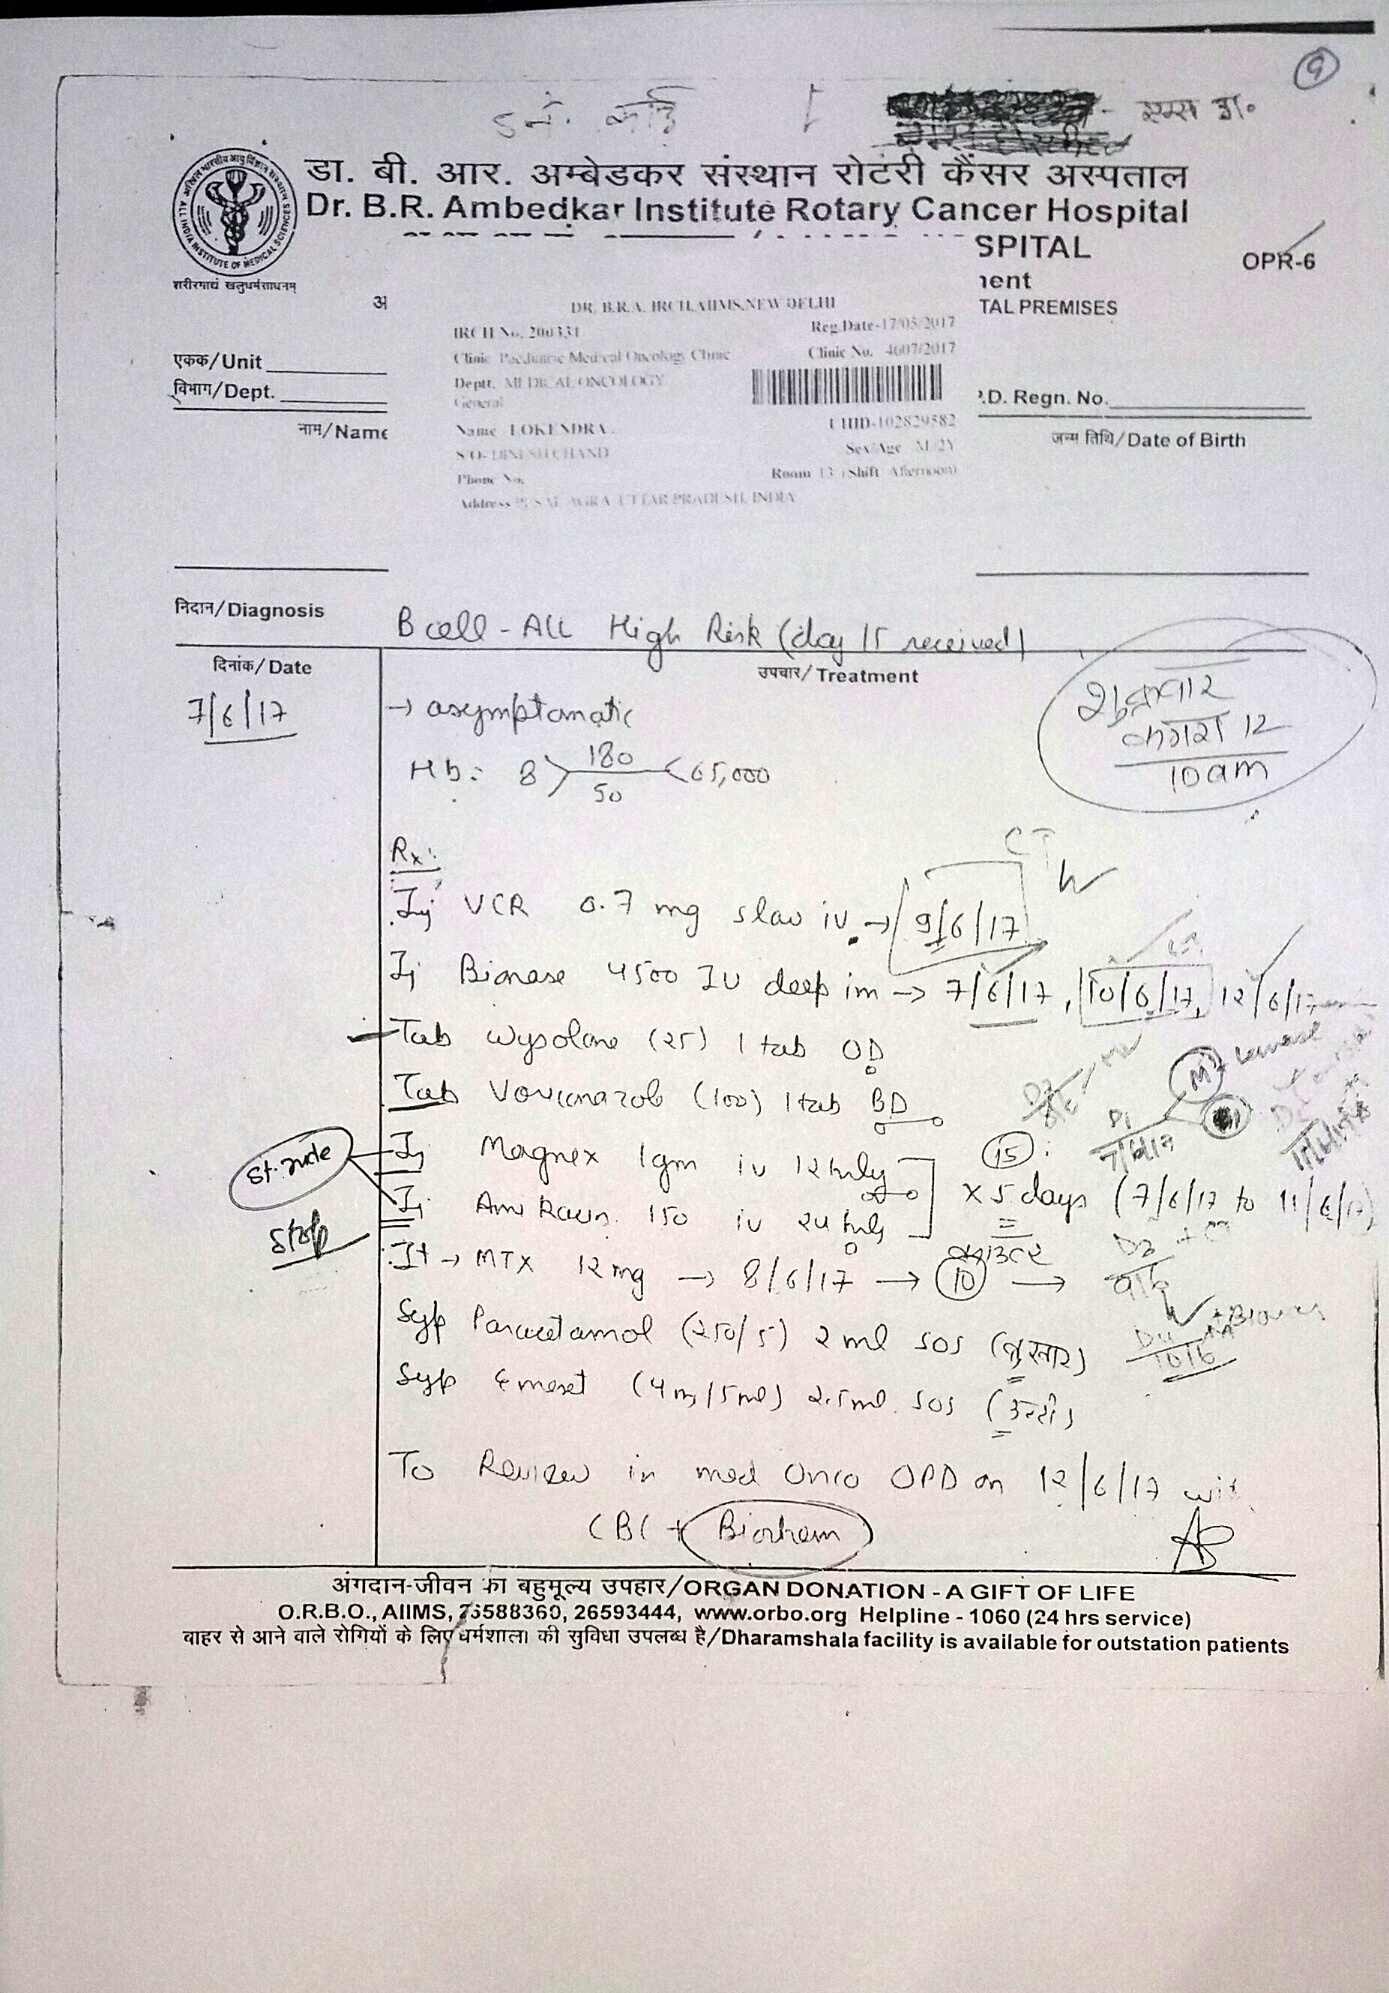 9
एम्स
डा. बी. आर. अम्बेडकर संस्थान रोटरी कैंसर अस्पताल
Dr. B.R. Ambedkar Institute Rotary Cancer Hospital
SPITAL
OPR-6
शरीरमाद्यं खलुधर्मसाधनम्
ALL INDIA INSTITUTE OF MEDICAL SCIENCES
अ
TAL PREMISES
DR. B.R.A. IRCH,AIIMS,NEW DELHI
IRCH No. 206331 Reg.Date-17/05/2017
Clinic Paediatric Medical Oncology Clinic Clinic No. 4607/2017
Deptt. MEDICAL ONCOLOGY
General
Name LOKENDRA . UHID-102829582
S/O- DINESH CHAND Sex/Age M/2Y
Phone No. Room 13 (Shift Afternoon)
Address AGRA UTTAR PRADESH, INDIA
एकक/Unit
विभाग/Dept.
.D. Regn. No.
नाम/Name
जन्म तिथि/Date of Birth
निदान/Diagnosis
B cell - ALL High Risk (day 15 received)
दिनांक/Date
उपचार/Treatment
7/6/17
→ asymptomatic
शुक्रवार
12
10 am
Hb: 8 180 65,000
50
Rx:
CT
Inj VCR 0.7 mg slow iv → 9/6/17
Inj Bionase 4500 IU deep im → 7/6/17, 10/6/17, 12/6/17
Tab Wysolone (25) 1 tab OD
Tab Voriconazole (100) 1 tab BD
Inj Magnex 1gm iv 12 hrly
15
Inj Amikacin 150 iv 24 hrly
x 5 days (7/6/17 to 11/6/17)
Stop
It → MTX 12 mg → 8/6/17 → 10 →
Syp Paracetamol (250/5) 2 ml SOS (बुखार)
Syp Emeset (4mg/5ml) 2.5ml SOS (उल्टी)
To Review in med Onco OPD on 12/6/17
CBC + Biochem
अंगदान-जीवन का बहुमूल्य उपहार/ORGAN DONATION - A GIFT OF LIFE
O.R.B.O., AIIMS, 26588360, 26593444, www.orbo.org Helpline - 1060 (24 hrs service)
बाहर से आने वाले रोगियों के लिए धर्मशाला की सुविधा उपलब्ध है/Dharamshala facility is available for outstation patients